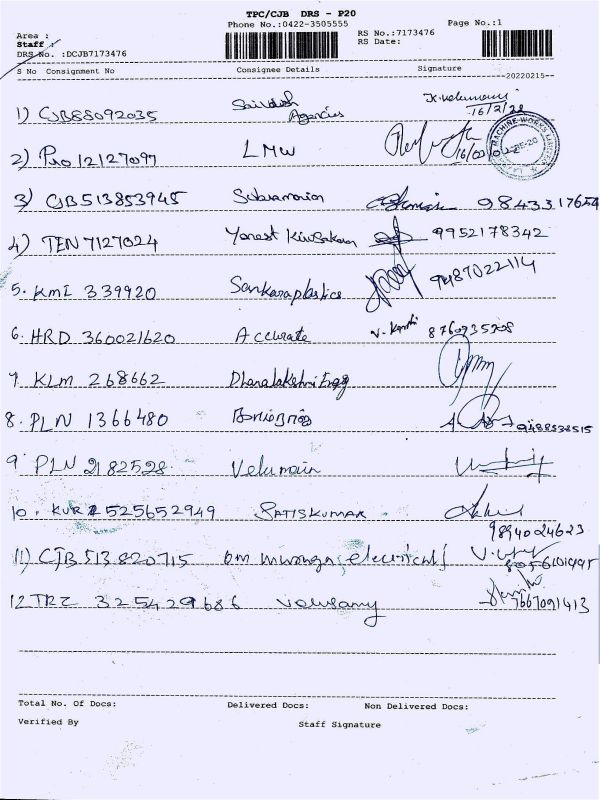 TPC/CJB DRS - P20
Phone No.:0422-3505555 Page No.:1
Area :
Staff :
DRS No. :DCJB7173476
RS No.:7173476
RS Date:
S No Consignment No Consignee Details Signature
--20220215--
1) CJB88092035 Agencies 16/2/22
2) Pno 12127097 LMW
MACHINE WORKS
3) CJB 513853945 Subramanian 9843317654
4) TEN 7127024 9952178342
5. KMI 339920 Sankaraplastics 9487022114
6. HRD 360021620 Accurate V. 8760935208
7. KLM 268662 Dhanalakshmi Engg
8. PLN 1366480 9488538515
9. PLN 2182528 Velumain
10. KUR 525652949 SATISKUMAR
9894024623
11) CJB 513820715 electricals
8056101495
12 TRZ 325429686 velusamy 7667091413
Total No. Of Docs: Delivered Docs: Non Delivered Docs:
Verified By Staff Signature